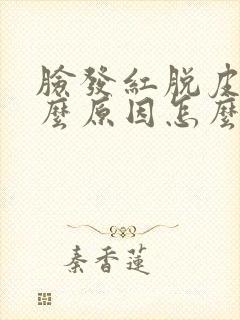 臉發紅脫皮
麼原因怎麼
秦香蓮